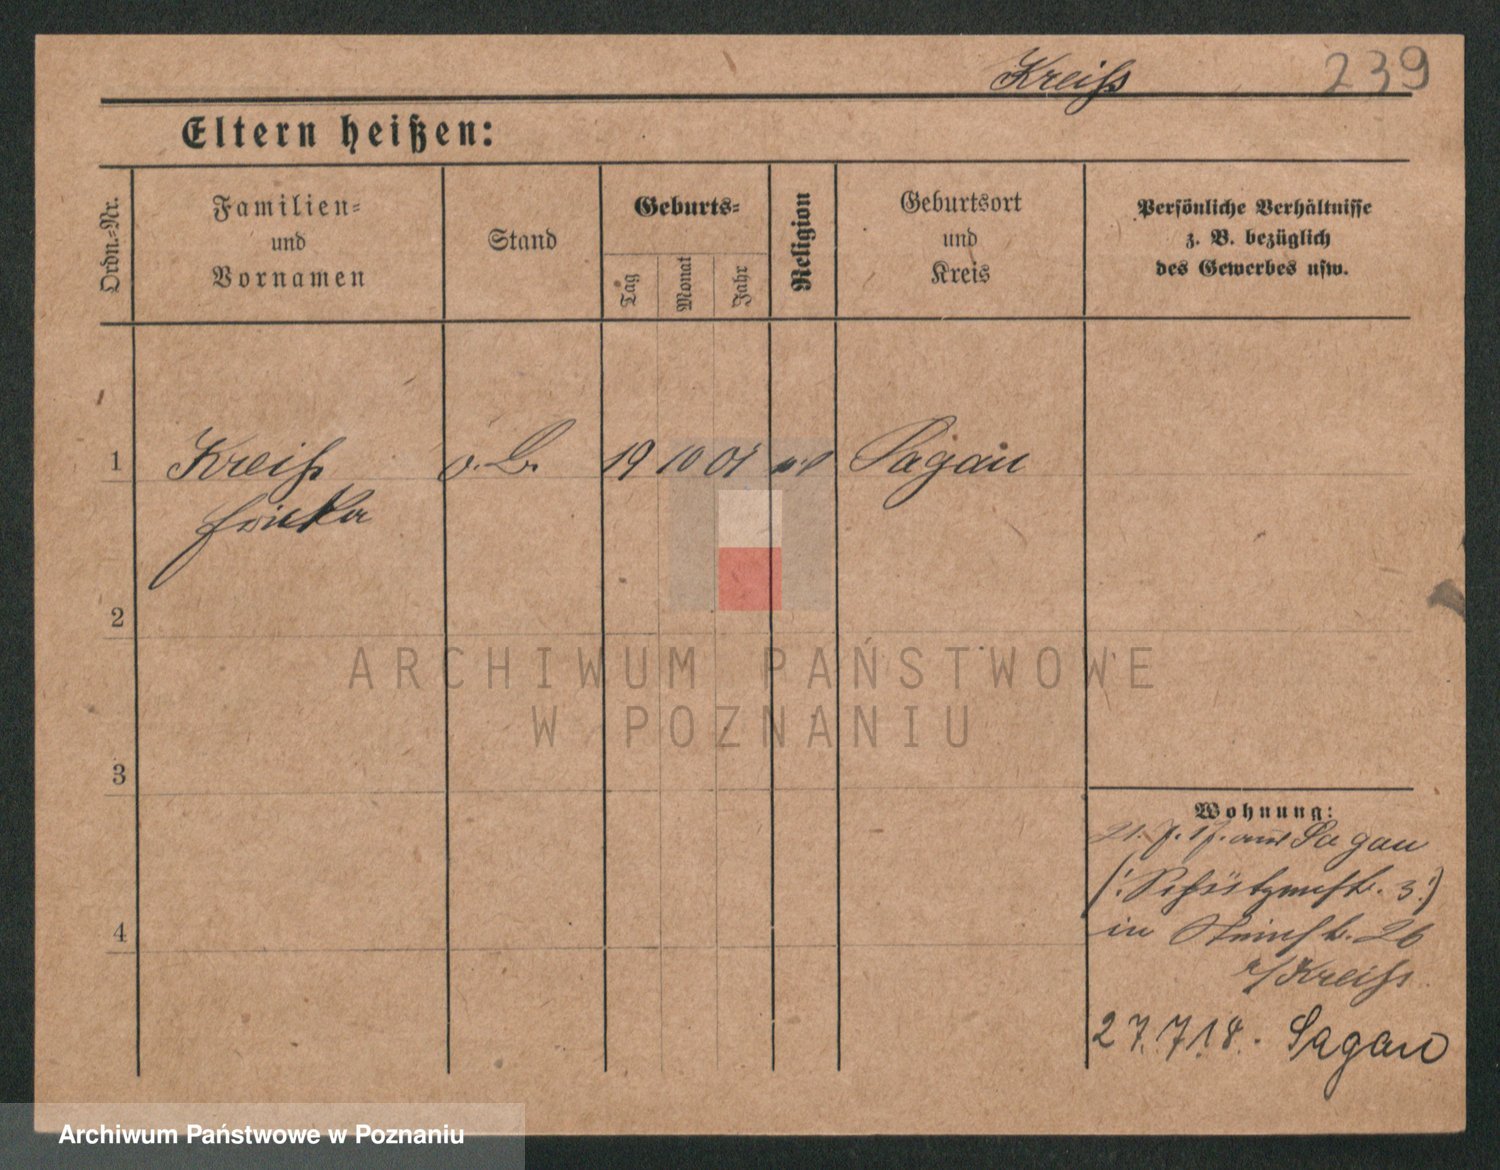 Kreiß 239
Eltern heißen:
Ordn.-Nr.
Familien-
und
Vornamen
Stand
Geburts-
Tag
Monat
Jahr
Religion
Geburtsort
und
Kreis
Persönliche Verhältnisse
z. B. bezüglich
des Gewerbes usw.
1 Kreiß o. B. 19 10 01 Sagan
2
3
4
Wohnung:
21. 7. 17. aus Sagan
(: Schützenstr. 3 :)
in 26
b/Kreiß
27.7.18. Sagan
ARCHIWUM PAŃSTWOWE
W POZNANIU
Archiwum Państwowe w Poznaniu